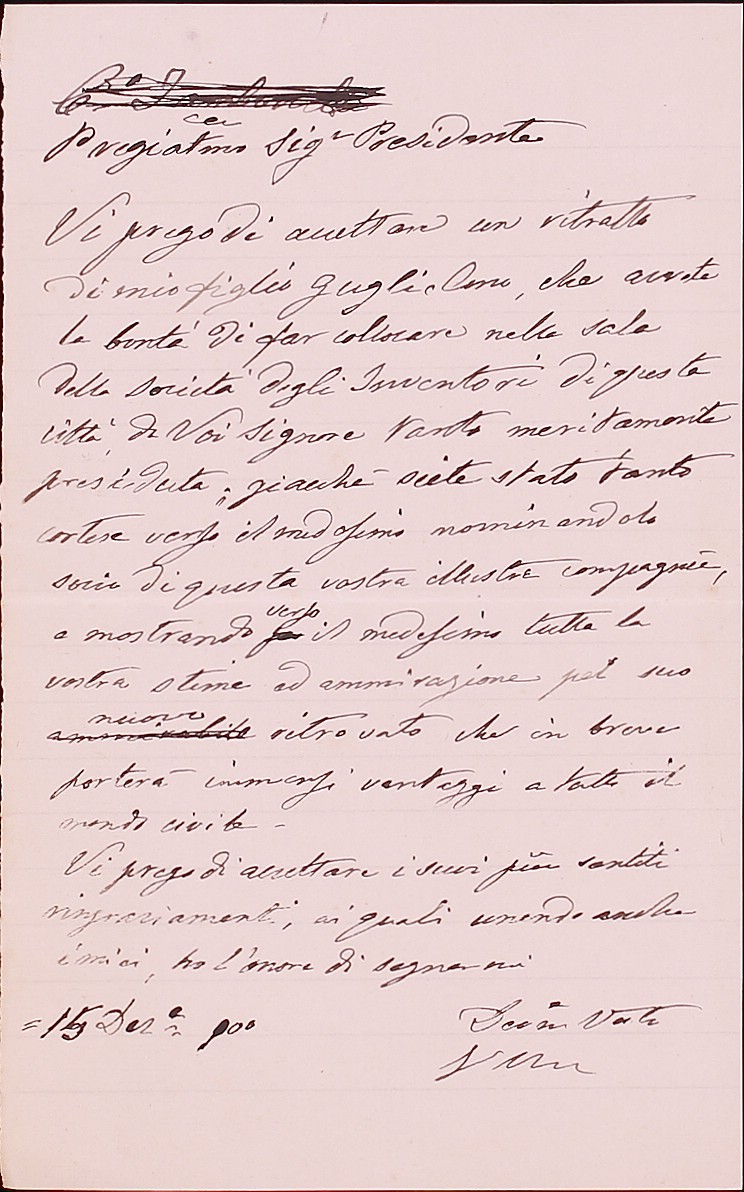 Pregiatmo Sigr Presidente
Vi prego di accettare un ritratto
di mio figlio Guglielmo, che avrete
la bontà di far collocare nella sala
della società degli Inventori di questa
città, da Voi Signore tanto meritamente
presieduta; giacchè siete stato tanto
cortese verso il medesimo nominandolo
socio di questa vostra illustre compagnia,
e mostrando verso il medesimo tutta la
vostra stima ed ammirazione pel suo
nuovo ammirabile ritrovato che in breve
porterà immensi vantaggi a tutto il
mondo civile -
Vi prego di accettare i suoi più sentiti
ringraziamenti, ai quali unendo anche
i miei, ho l'onore di segnarmi